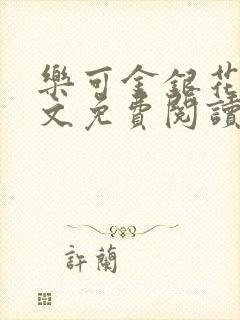 樂可金銀花
文免費閱讀
許蘭